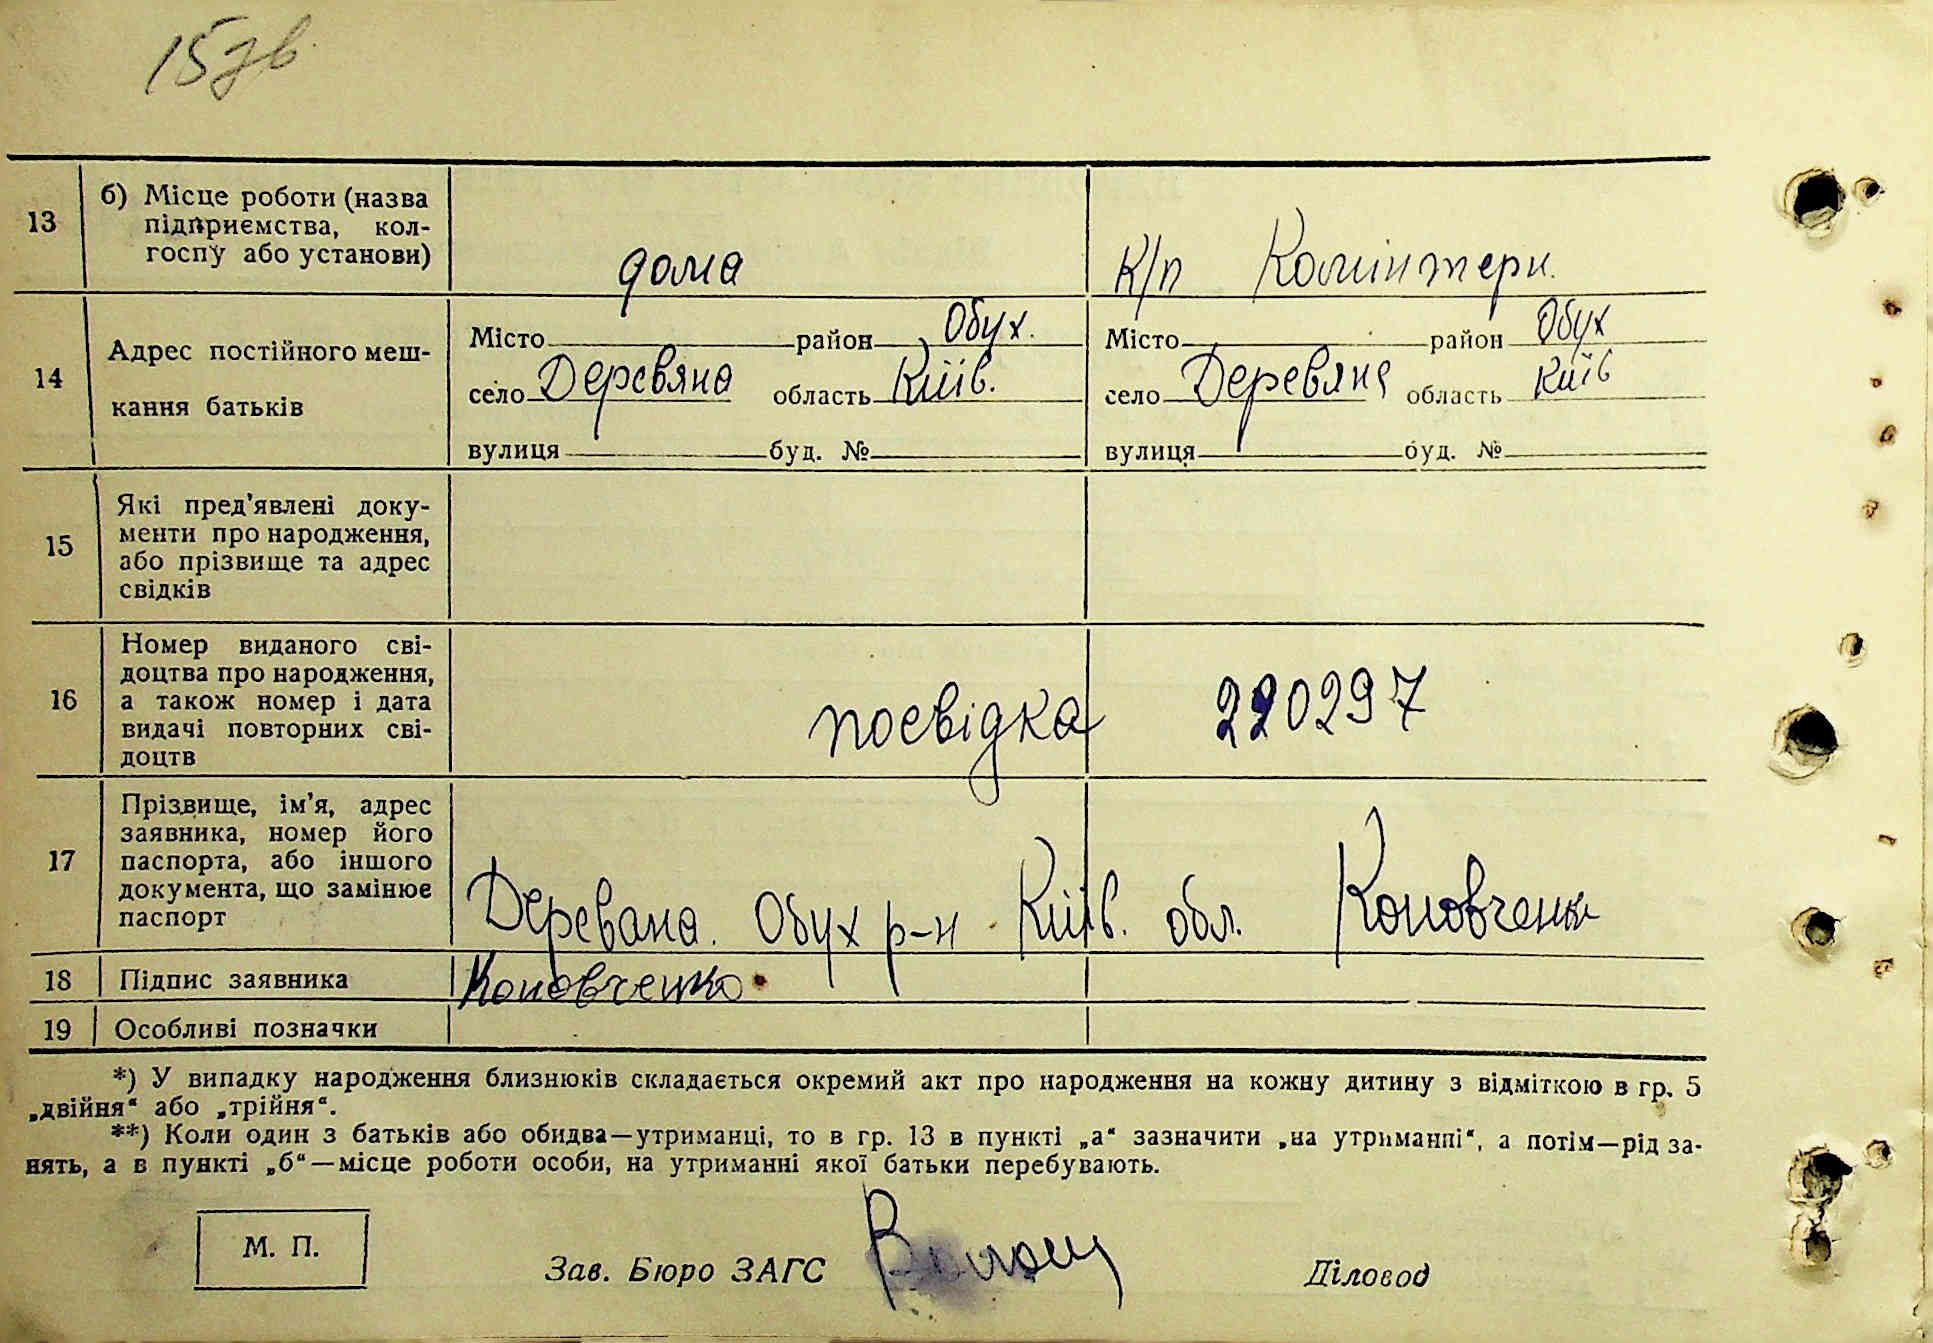 15зв
13 б) Місце роботи (назва
підприємства, кол-
госпу або установи)
дома
к/п Комінтерн.
14 Адрес постійного меш-
кання батьків
Місто район Обух.
село Деревяна область Київ.
вулиця буд. №
Місто район Обух
село Деревяна область Київ
вулиця буд. №
15 Які пред'явлені доку-
менти про народження,
або прізвище та адрес
свідків
16 Номер виданого сві-
доцтва про народження,
а також номер і дата
видачі повторних сві-
доцтв
посвідка 220297
17 Прізвище, ім'я, адрес
заявника, номер його
паспорта, або іншого
документа, що замінює
паспорт
Деревана. Обух р-н Київ. обл. Коновченко
18 Підпис заявника Коновченко
19 Особливі позначки
*) У випадку народження близнюків складається окремий акт про народження на кожну дитину з відміткою в гр. 5
„двійня“ або „трійня“.
**) Коли один з батьків або обидва—утриманці, то в гр. 13 в пункті „а“ зазначити „на утриманні“, а потім—рід за-
нять, а в пункті „б“—місце роботи особи, на утриманні якої батьки перебувають.
М. П.
Зав. Бюро ЗАГС
Діловод